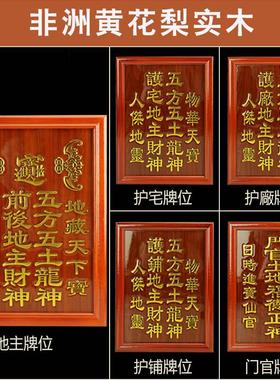 非洲黄花梨实木
地藏天下寶
五方五土龍神
前後地主財神
地主牌位
物華天寶
五方五土龍神
護宅地主財神
人傑地靈
护宅牌位
五方五土龍神
護廠地主財神
人傑地靈
护廠牌位
物華天寶
五方五土龍神
護鋪地主財神
人傑地靈
护铺牌位
日時進寶仙官
门官牌